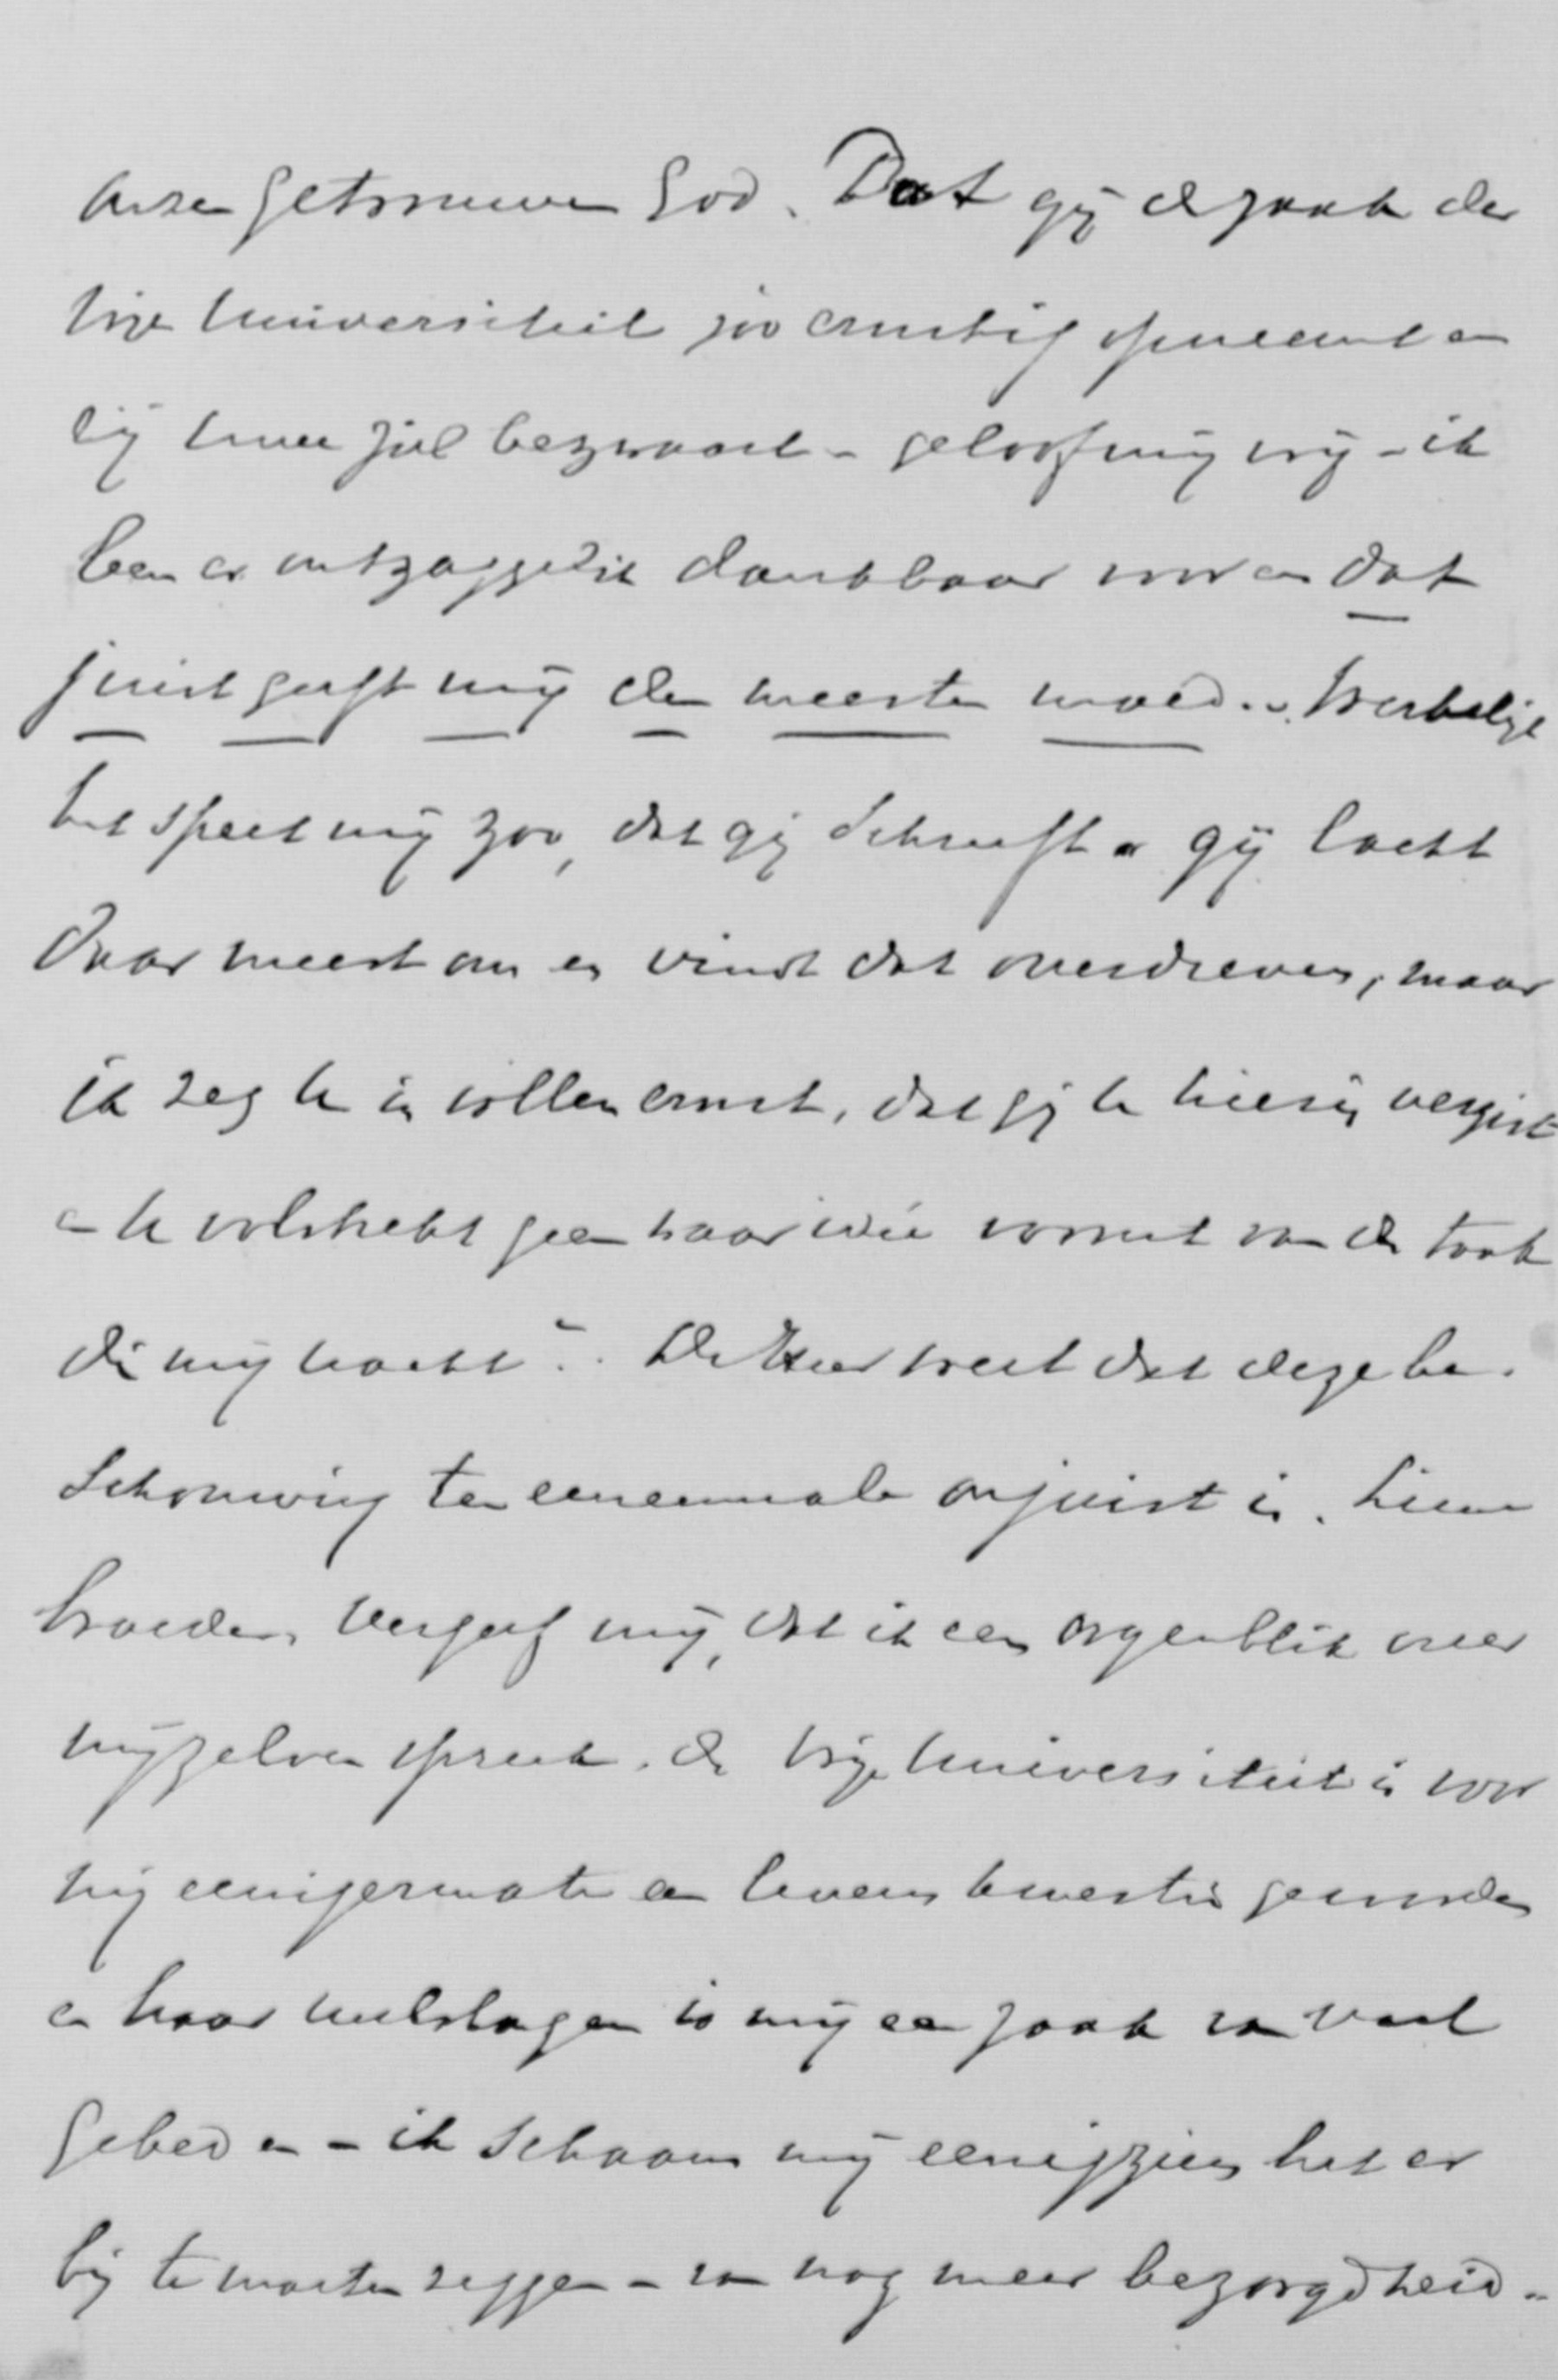 onzen getrouwen God. Dat gij de zaak der
Vrije Universiteit zoo ernstig opneemt en
zij Uwe ziel bezwaart - geloof mij vrij - ik
ben er ontzaggelijk dankbaar voor en dat
juist geeft mij den meesten moed... Werkelijk
het speet mij zoo, dat gij schreeft „ gij lacht
daar meest om en vindt dat overdreven, maar
ik zeg U in vollen ernst, dat gij U hierin vergist
en U volstrekt geen waar idée vormt van de taak
die mij wacht". De Heer weet dat deze be-
schouwing ten eenenmale onjuist is. Lieve
broeder, vergeef mij, dat ik een oogenblik over
mijzelven spreek. De Vrije Universiteit is voor
mij eenigermate een levenskwestie geworden
en haar welslagen is mij een zaak van veel
gebed en - ik schaam mij eenigzins het er
bij te moeten zeggen - van nog meer bezorgdheid -